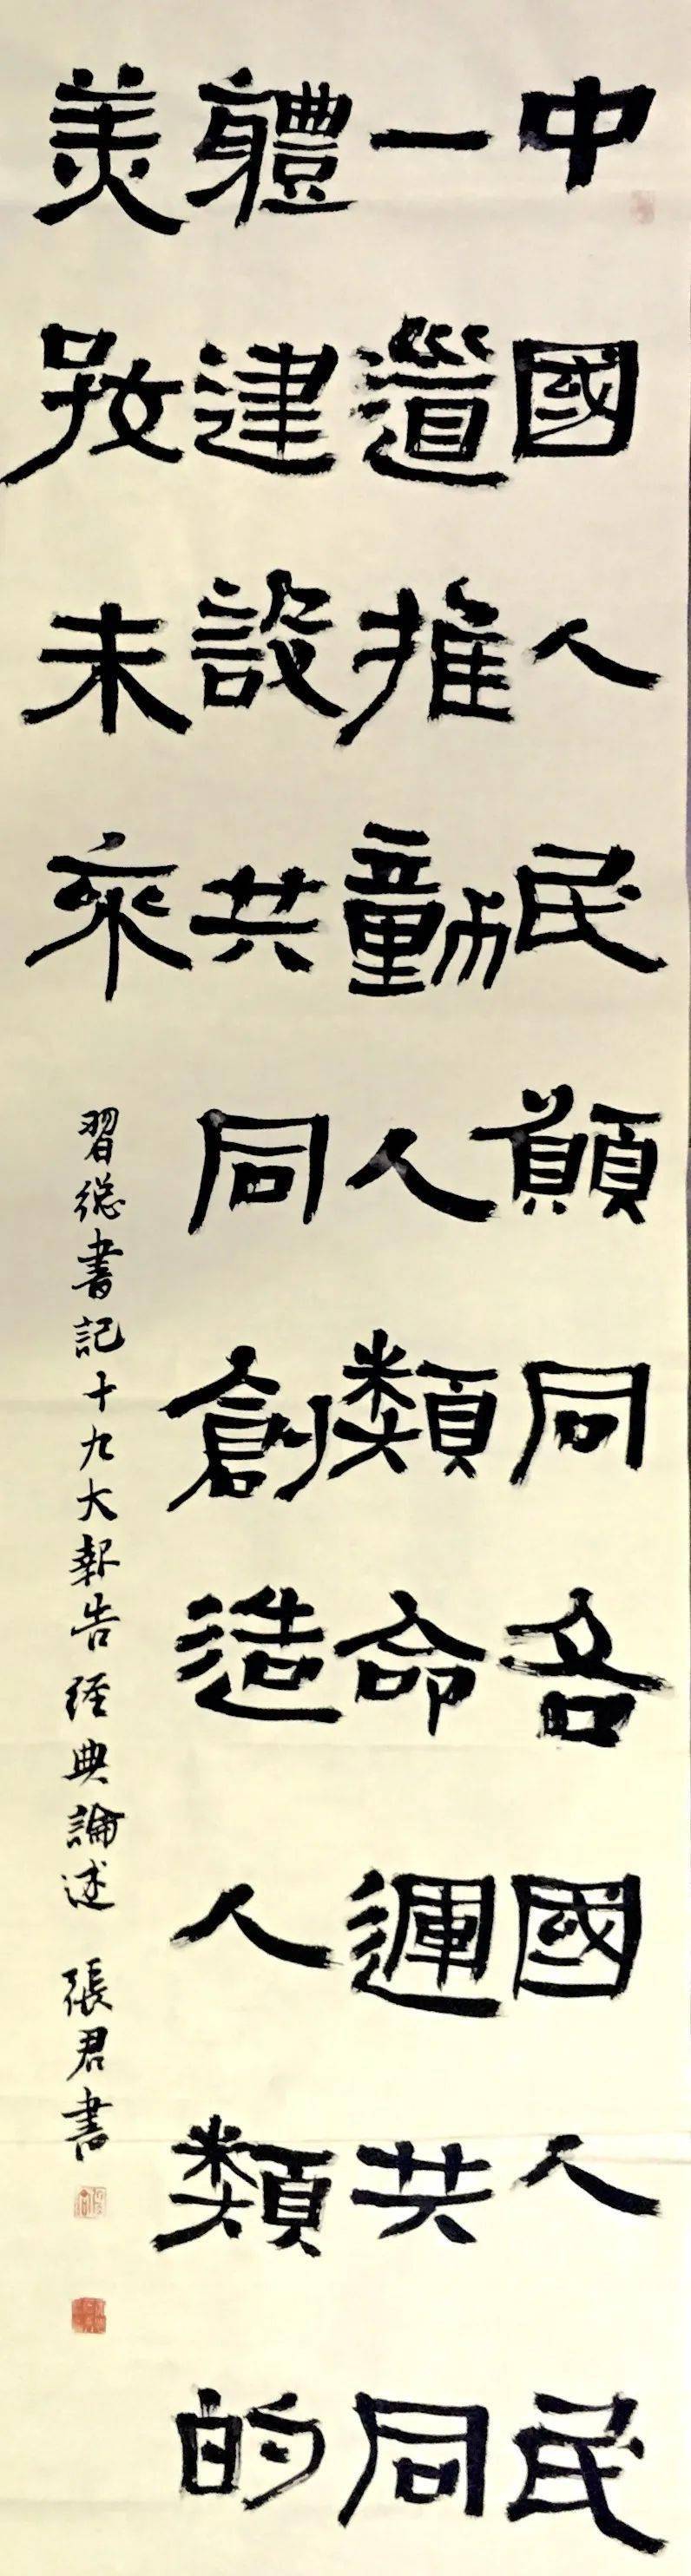 中國人民願同各國人民
一道推動人類命運共同
體建設共同創造人類的
美好未來
習總書記十九大報告經典論述 張君書